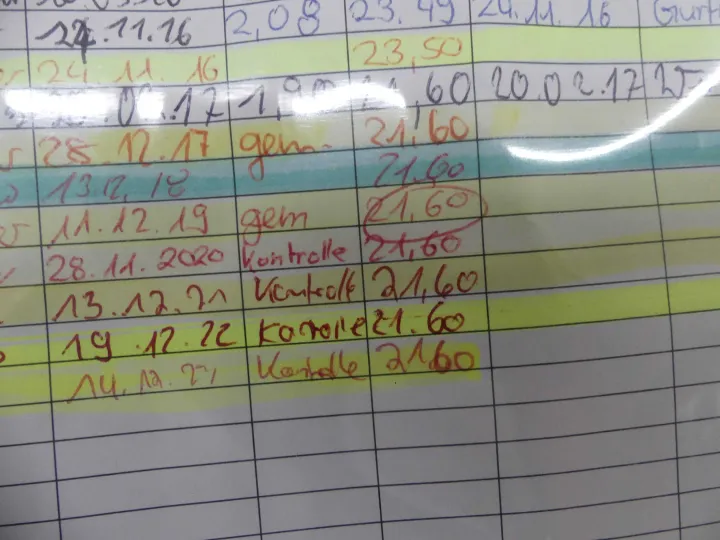 2,08 23.49 24.11.16 Gurt
24.11.16
24.11.16 23,50
17 1,90 21,60 20.02.17
28.12.17 gem. 21,60
13.12.18 21,60
11.12.19 gem 21,60
28.11.2020 Kontrolle 21,60
13.12.21 Kontrolle 21,60
19.12.22 Kontrolle 21.60
14.12. Kontrolle 21,60